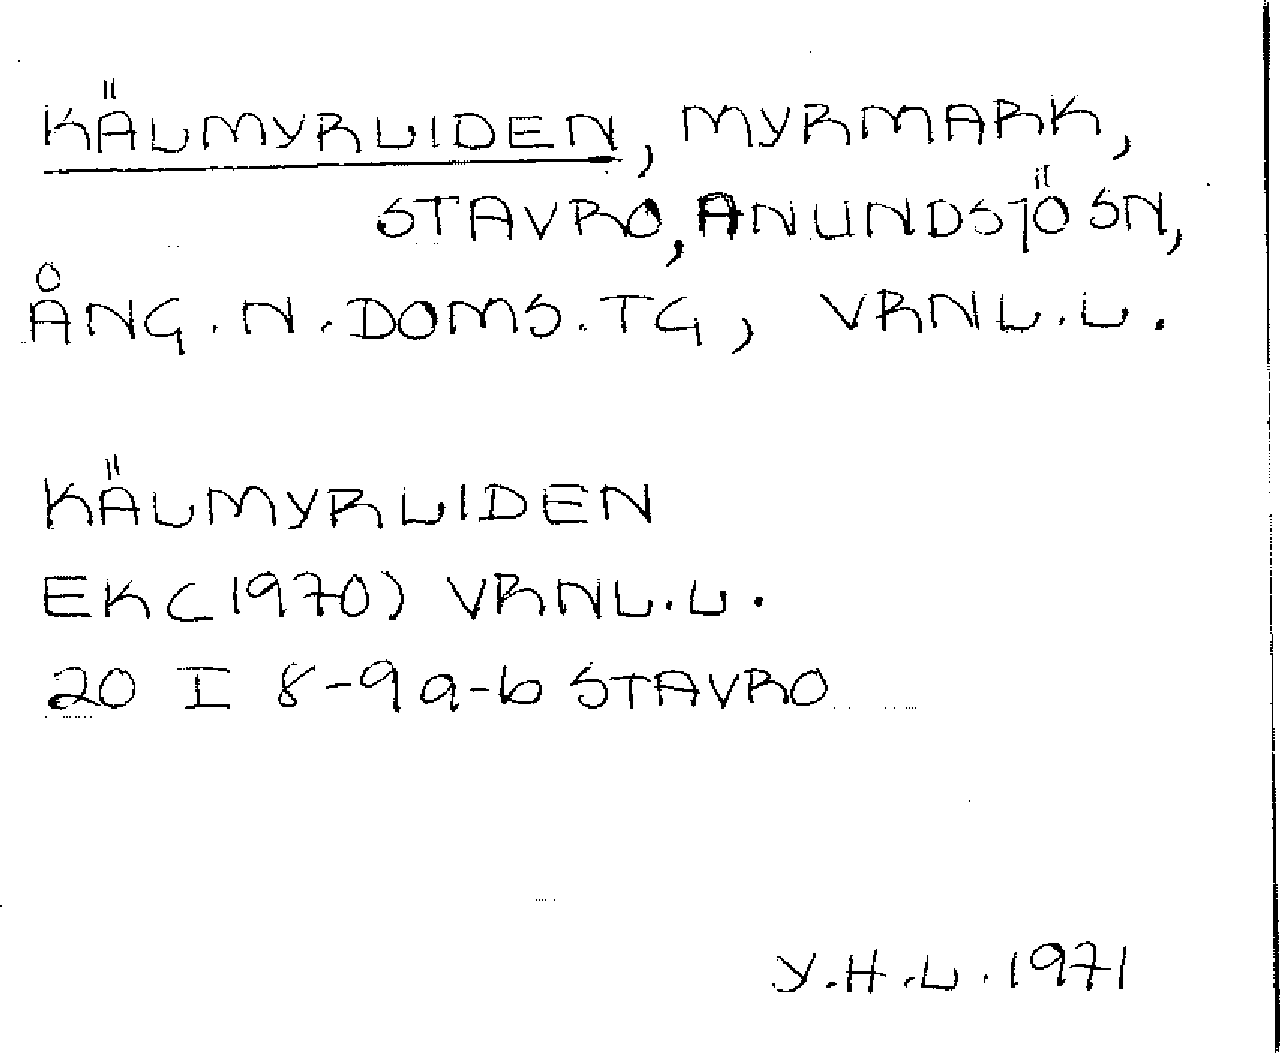 KÄLMYRLIDEN, MYRMARK,
STAVRO, ANUNDSJÖ SN,
ÅNG. N. DOMS. TG, VRNL. L.
KÄLMYRLIDEN
EK (1970) VRNL. L.
20 I 8-9 a-b STAVRO
Y. H. L. 1971